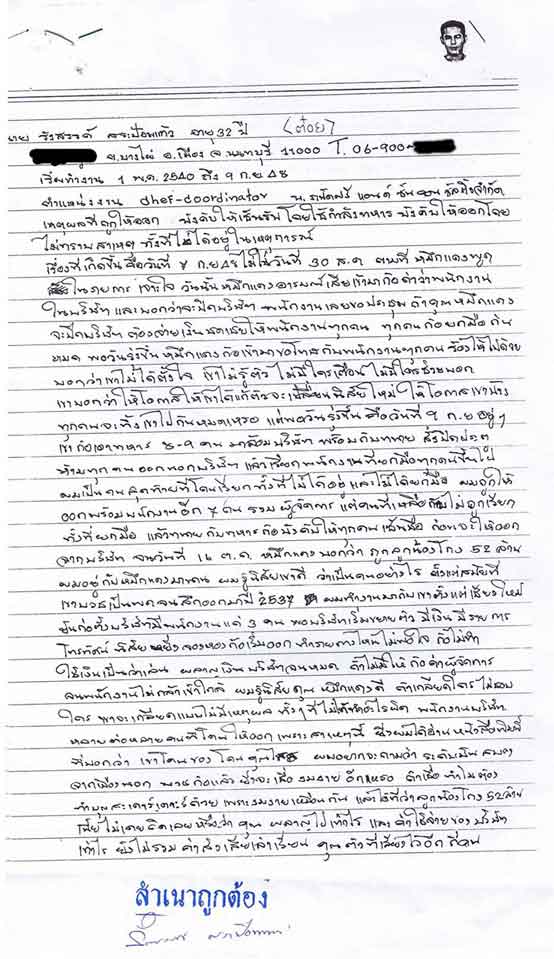 นาย รังสรรค์ สระป้อมแก้ว อายุ 32 ปี (ต๋อย)
ต.บางไผ่ อ.เมือง จ.นนทบุรี 11000 T. 06-900-
เริ่มทำงาน 1 พ.ค. 2540 ถึง 9 ก.ย 48
ตำแหน่งงาน chef-coordinator บ.
เหตุผลที่ถูกให้ออก บังคับให้เซ็นรับโดยใช้กำลังทหาร บังคับให้ออกโดย
ไม่ทราบสาเหตุ ทั้งที่ไม่ได้อยู่ในเหตุการณ์
เรื่องที่เกิดขึ้น คือวันที่ 8 ก.ย 48 ไม่ใช่วันที่ 30 ส.ค ตามที่ หมึกแดงพูด
ในรายการ เจาะใจ วันนั้นหมึกแดงอารมณ์เสียเข้ามาก็ด่าว่าพนักงาน
ในบริษัท และบอกว่าจะปิดบริษัท พนักงานเลยขอประชุม ถ้าคุณหมึกแดง
จะปิดบริษัท ต้องจ่ายเงินชดเชยให้พนักงานทุกคน ทุกคนก็ยกมือกัน
หมด พอวันรุ่งขึ้น หมึกแดงก็เข้ามาขอโทษกับพนักงานทุกคน ร้องไห้ไปด้วย
บอกว่าเขาไม่ได้ตั้งใจ เขาไม่รู้ตัว ไม่มีใครเตือน ไม่มีใครช่วยบอก
เขาบอกว่าให้โอกาสให้เขาได้แก้ตัวจะเปลี่ยนนิสัยใหม่ ให้โอกาสเขาบ้าง
ทุกคนจะทิ้งเขาไปกันหมดเหรอ แต่พอวันรุ่งขึ้น คือวันที่ 9 ก.ย อยู่ๆ
เขาก็เอาทหาร 8-9 คน มาล้อมบริษัท พร้อมกับทนาย สั่งปิดประตู
ห้ามทุกคนออกนอกบริษัท แล้วเรียกพนักงานที่ยกมือทุกคนขึ้นไป
ผมเป็นคนสุดท้ายที่โดนเรียก ทั้งที่ไม่ได้อยู่และไม่ได้ยกมือ ผมถูกให้
ออกพร้อมพนักงานอีก 7 คน รวมผู้จัดการ แต่คนที่เหลือกลับไม่ถูกเรียก
ทั้งที่ยกมือ แล้วทนายกับทหารก็บังคับให้ทุกคนเซ็นชื่อ ก่อนจะให้ออก
จากบริษัท จนวันที่ 14 ต.ค. หมึกแดงบอกว่า ถูกลูกน้องโกง 52 ล้าน
ผมอยู่กับหมึกแดงมานาน ผมรู้นิสัยเขาดี ว่าเป็นคนอย่างไร ตั้งแต่สมัยที่
เขาบวชเป็นพระจนสึกออกมาปี 2537 ผมทำงานมากับเขาตั้งแต่เชียงใหม่
จนก่อตั้งบริษัทมีพนักงานแค่ 3 คน พอบริษัทเริ่มขยายตัว มีเงิน มีรายการ
โทรทัศน์ นิสัยหยิ่งจองหองก็เริ่มออก ทำรายการไหนไม่พอใจ ก็ไม่ทำ
ใช้เงินเป็นว่าเล่น ผลาญเงินบริษัทจนหมด ถ้าไม่มีให้ ก็ด่าผู้จัดการ
จนพนักงานไม่กล้าเข้าใกล้ ผมรู้นิสัยคุณหมึกแดงดี ถ้าเกลียดใครไม่ชอบ
ใคร เขาจะเกลียดแบบไม่มีเหตุผล ทั้งๆ ที่ไม่ได้ทำอะไรผิด พนักงานบริษัท
หลายต่อหลายคนที่โดนให้ออก เพราะสาเหตุนี้ ซึ่งผมได้อ่านหนังสือพิมพ์
ที่บอกว่า เขาโดนของ โดนคุณไสย ผมอยากจะถามว่า ระดับมันสมอง
จากเมืองนอก บวชก็แล้ว ยังจะเชื่องมงายอีกเหรอ ถ้าเชื่อ ทำไมต้อง
ด้วย เพราะงมงายเหมือนกัน แล้วไอ้ที่ว่าลูกน้องโกง 52 ล้าน
เนี่ยไม่เคยคิดเลยหรือว่า คุณ ผลาญไปเท่าไร และค่าใช้จ่ายของบริษัท
เท่าไร ยังไม่รวม ค่าส่งเสียเล่าเรียน คุณตัวที่เลี้ยงไว้อีกกี่คน
สำเนาถูกต้อง